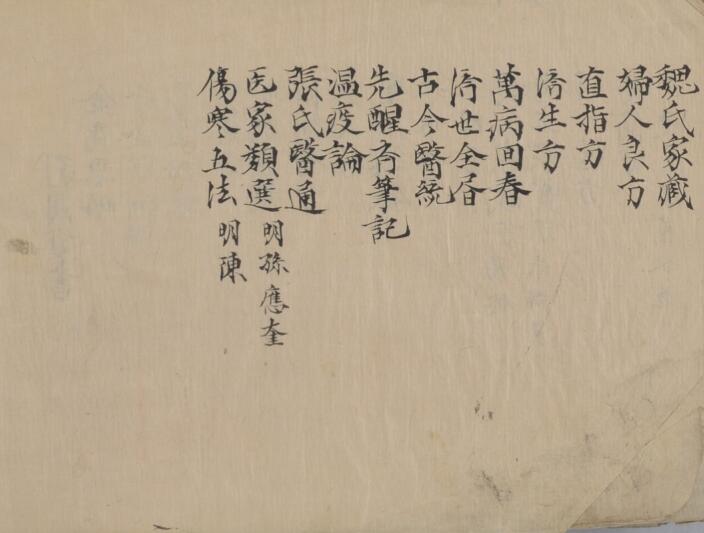 魏氏家藏
婦人良方
直指方
済生方
萬病回春
済世全春
古今醫統
先醒斎筆記
温疫論
張氏醫通
医家類選 明 孫應奎
傷寒五法 明 陳